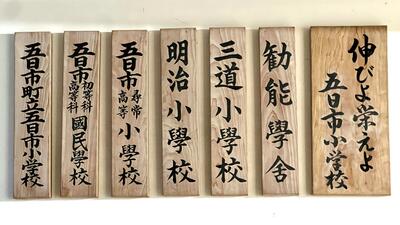 伸びよ栄えよ
五日市小学校
勧能學舎
三道小學校
明治小學校
五日市尋常高等小學校
五日市初等科高等科國民學校
五日市町立五日市小学校